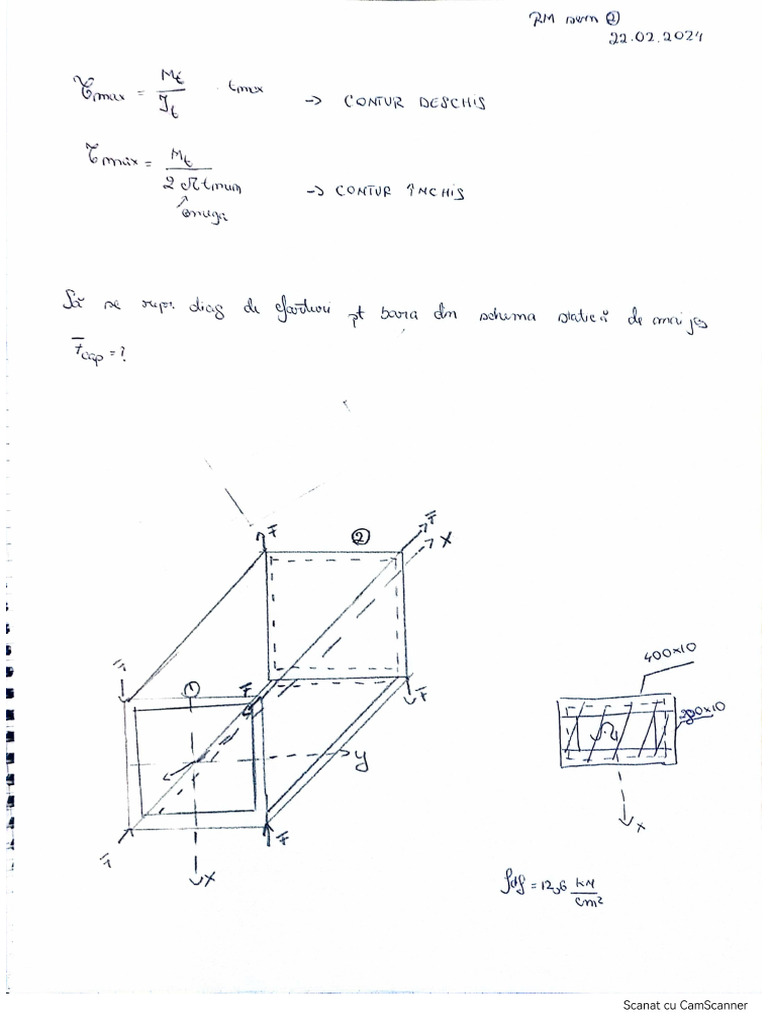 RM sem ②
22.02.2024
τmax = Mt / It · tmax → CONTUR DESCHIS
τmax = Mt / 2 Ω tmin → CONTUR ÎNCHIS
omega
Să se repr. diag de eforturi pt bara din schema statică de mai jos
Fcap = ?
F
②
F
X
F
①
F
F
Y
F
F
X
400x10
200x10
Ω
X
fdf = 12,6 kN/cm²
Scanat cu CamScanner